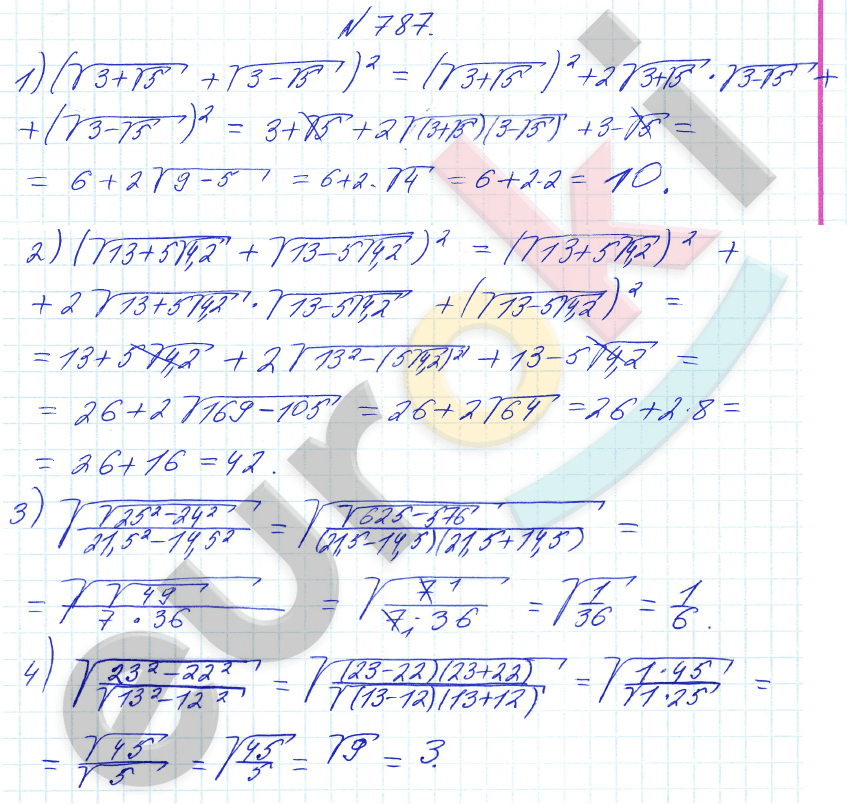 № 787.
1) (√(3+√5) + √(3-√5))² = (√(3+√5))² + 2√(3+√5) · √(3-√5) +
+ (√(3-√5))² = 3+√5 + 2√((3+√5)(3-√5)) + 3-√5 =
= 6 + 2√(9-5) = 6+2·√4 = 6+2·2 = 10.
2) (√(13+5√4,2) + √(13-5√4,2))² = (√(13+5√4,2))² +
+ 2√(13+5√4,2) · √(13-5√4,2) + (√(13-5√4,2))² =
= 13+5√4,2 + 2√(13²-(5√4,2)²) + 13-5√4,2 =
= 26+2√(169-105) = 26+2√64 = 26+2·8 =
= 26+16 = 42.
3) √(√(25²-24²)/(21,5²-14,5²)) = √(√(625-576)/((21,5-14,5)(21,5+14,5))) =
= √(√49/(7·36)) = √(7 1/(7 1·36)) = √(1/36) = 1/6.
4) √((23²-22²)/√(13²-12²)) = √((23-22)(23+22)/√((13-12)(13+12))) = √(1·45/√(1·25)) =
= √45/√5 = √(45/5) = √9 = 3.
euroki